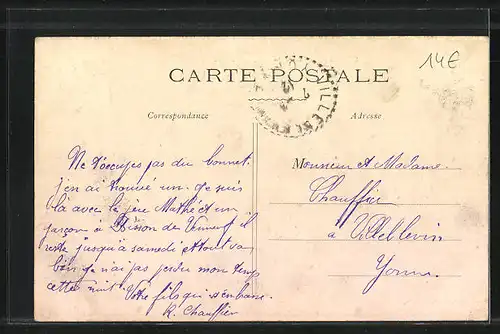 14€
CARTE POSTALE
Correspondance
Adresse
Ne t'occupes pas du bonnet
j'en ai trouvé un. Je suis
là avec le père Mathé et un
garçon à de il
reste jusqu'à samedi et tout va
bien je n'ai pas perdu mon temps
cette nuit. Votre fils qui
R. Chauffier
Monsieur et Madame
Chauffier
à Villeblevin
Yonne